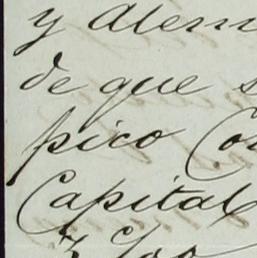 y Alem
de que s
pico Co
Capital
y Coo